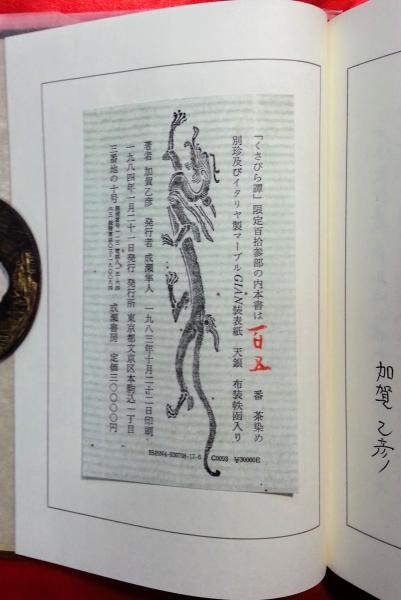 『くさびら譚』限定百拾参部の内本書は 百五 番 茶染め
別珍及びイタリヤ製マーブルGIAN装表紙 天銀 布装帙函入り
著者 加賀乙彦 発行者 成瀬隼人 一九八三年十月二十二日印刷
一九八四年一月二十一日発行 発行所 東京都文京区本駒込一丁目
三番地の十号 成瀬書房 定価三〇〇〇〇円
C0093 ¥30000E
加賀乙彦